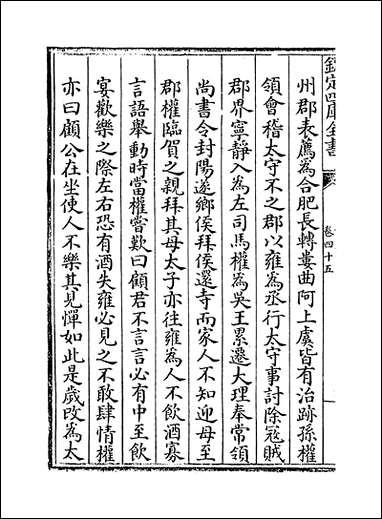 欽定四庫全書
卷四十五
州郡表薦為合肥長轉婁曲阿上虞皆有治跡孫權
領會稽太守不之郡以雍為丞行太守事討除寇賊
郡界寧靜入為左司馬權為吳王累遷大理奉常領
尚書令封陽遂鄉侯拜侯還寺而家人不知迎母至
郡權臨賀之親拜其母太子亦往雍為人不飲酒寡
言語舉動時當權嘗歎曰顧君不言言必有中至飲
宴歡樂之際左右恐有酒失雍必見之不敢肆情權
亦曰顧公在坐使人不樂其見憚如此是歲改為太